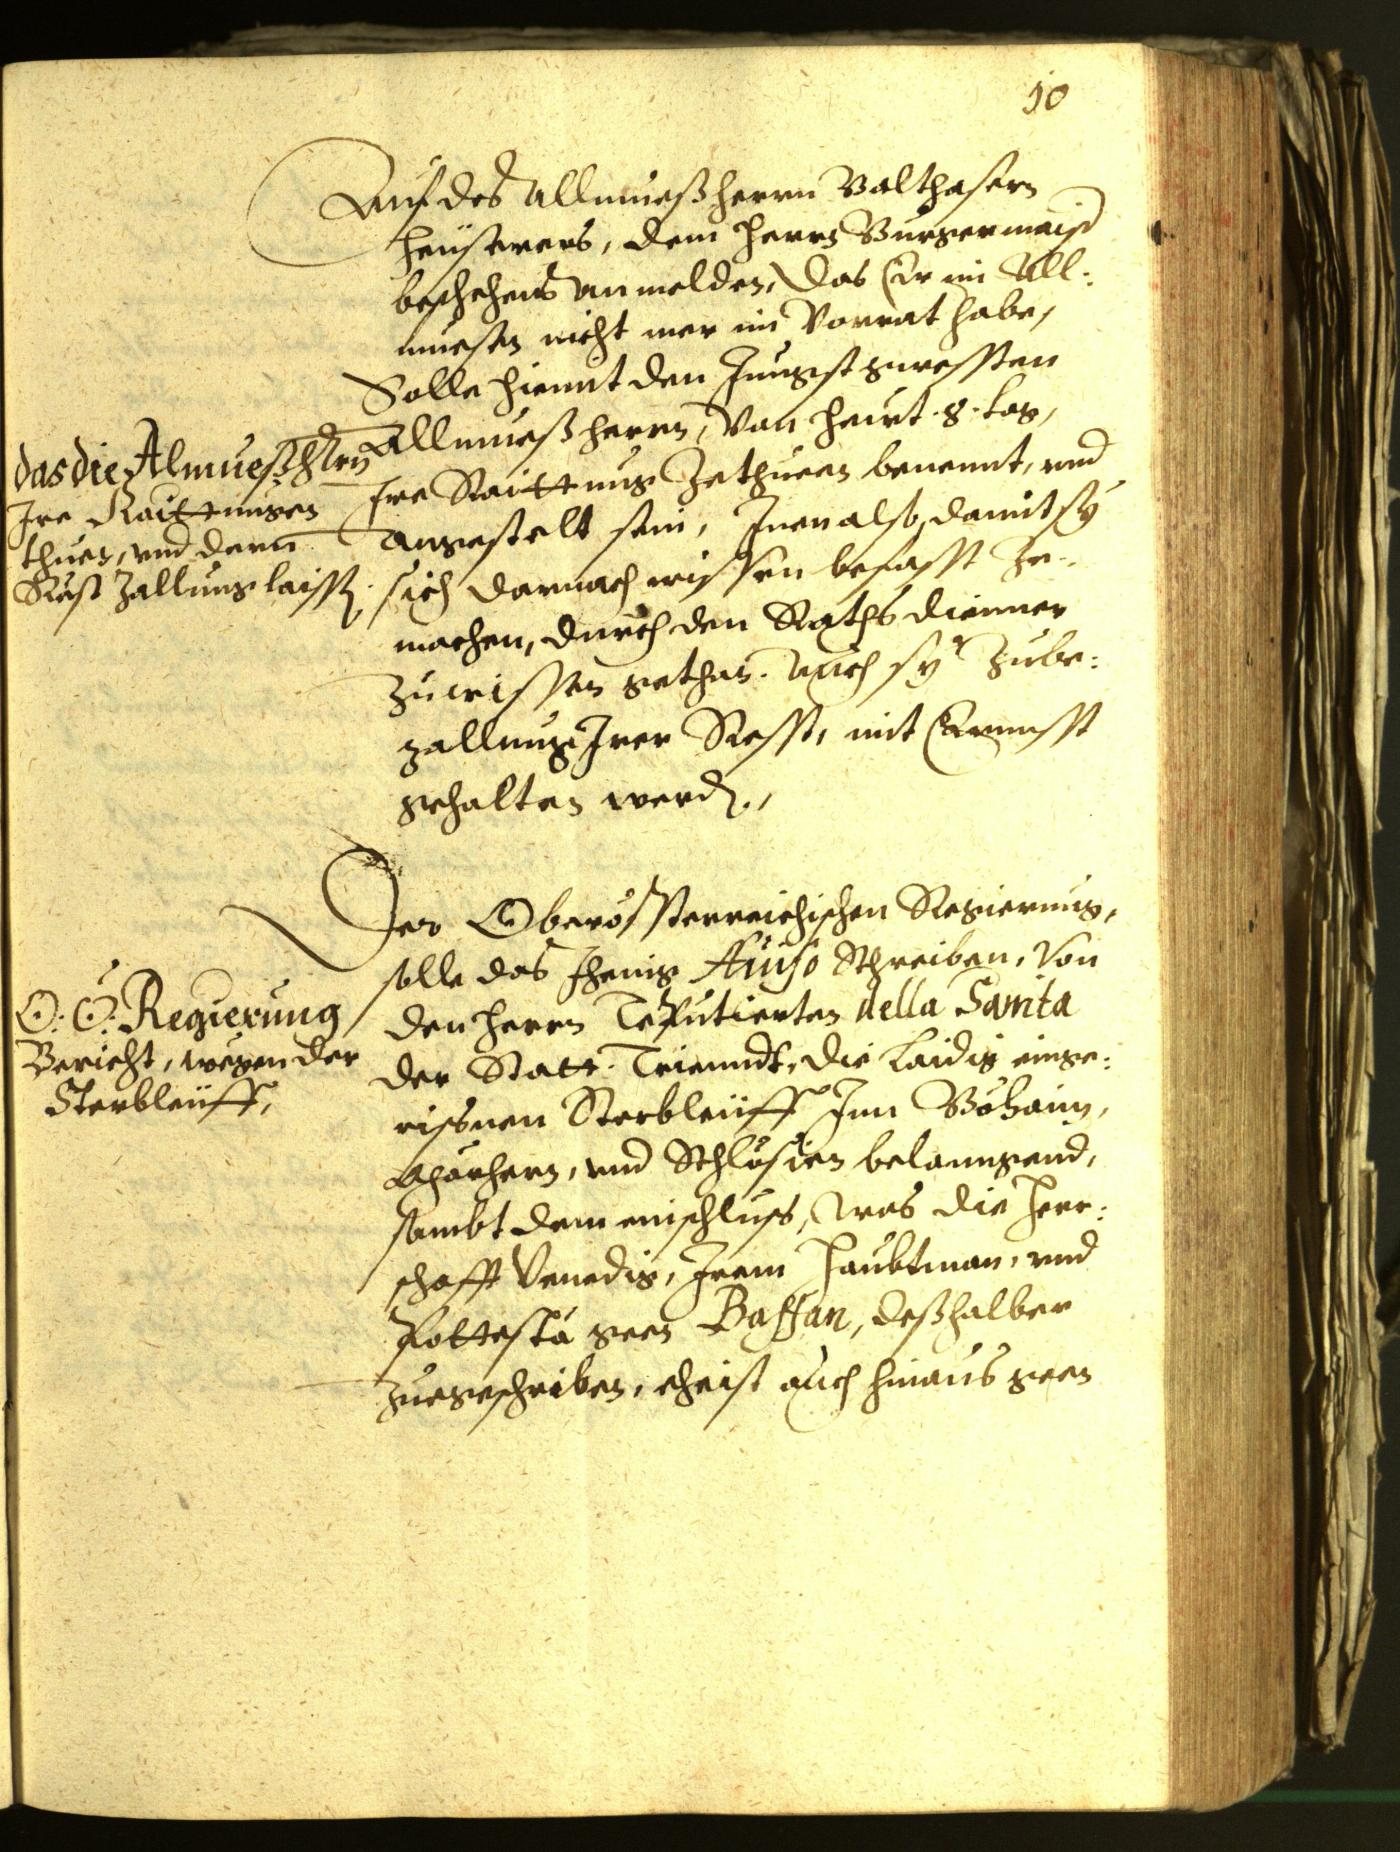 10
Auf des Allmueß herrn Balthasern
heüserers, dem herrn Burgermaist
beschehens anmelden, das Er im All:
muesen nicht mer im Vorrat habe,
Solle hiemit den Jüngst gwessten
Allmueß herrn, Von heut .8. tag,
Ire Raittung Zethuen benennt, vnd
angestelt sein, Inen also, damit sy
sich darnach wissen befasst Ze:
machen, durch den Raths diener
zuwissen gethan. Auch sy zube:
zallung Irer Resst, mit Ernnsst
gehalten werd.,
das die Almueß hern
Ire Raittungen
thuen, vnd deren
Rest Zallung laissen.
Der Oberösterreichischen Regierung,
solle das Jhenig Auiso Schreiben, Von
den herrn Deputierten della Sanita
der Statt Triendt, die Laidig einge:
rissnen Sterbleüff Inn Böhaim,
Märhern, vnd Schlösien belanngend,
sambt dem einschluss, was die herr:
schafft Venedig, Irem Haubtman, vnd
Pottestà geen Bassan, deßhalber
zuegeschriben, eheist auch hinaus geen
O: Ö: Regierung
Bericht, wegen der
Sterbleüff,